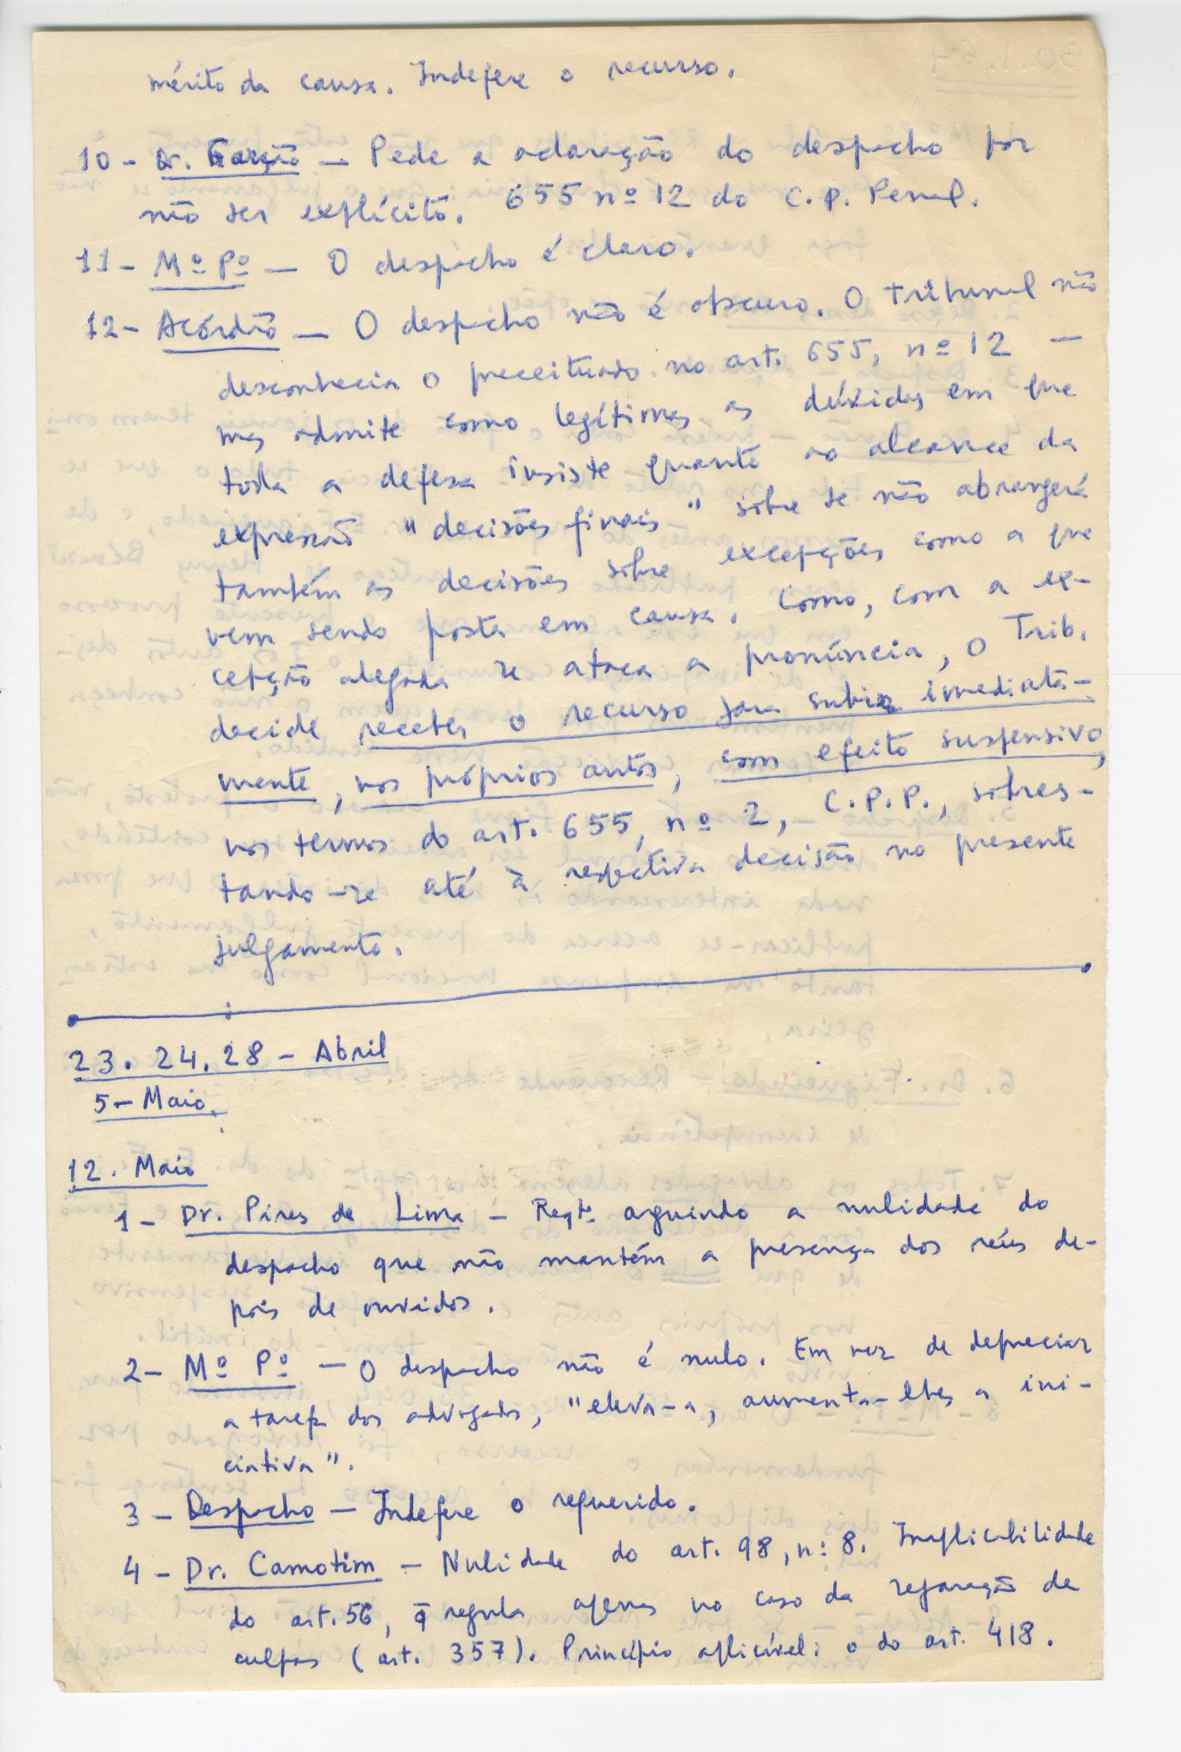 mérito da causa. Indefere o recurso.
10 - Dr. Garção — Pede a aclaração do despacho por
não ser explícito. 655 nº 12 do C.P. Penal.
11 - Mº Pº — O despacho é claro.
12 - Acórdão — O despacho não é obscuro. O Tribunal não
desconhecia o preceituado no art. 655, nº 12 —
mas admite como legítimas as dúvidas em que
toda a defesa insiste quanto ao alcance da
expressão "decisões finais" sobre se não abrangerá
também as decisões sobre excepções como a que
vem sendo posta em causa. Como, com a ex-
cepção alegada se ataca a pronúncia, o Trib.
decide receber o recurso para subir imediata-
mente, nos próprios autos, com efeito suspensivo,
nos termos do art. 655, nº 2, C.P.P., sobres-
tando-se até à respectiva decisão no presente
julgamento.
23. 24. 28 - Abril
5 - Maio.
12. Maio
1 - Dr. Pires de Lima - Reqtº arguindo a nulidade do
despacho que não mantém a presença dos réus de-
pois de ouvidos.
2 - Mº Pº — O despacho não é nulo. Em vez de depreciar
a tarefa dos advogados, "eleva-a, aumenta-lhes a ini-
ciativa".
3 - Despacho — Indefere o requerido.
4 - Dr. Camotim — Nulidade do art. 98, nº 8. Inaplicabilidade
do art. 56, q̄ regula apenas no caso da separação de
culpas (art. 357). Princípio aplicável: o do art. 418.